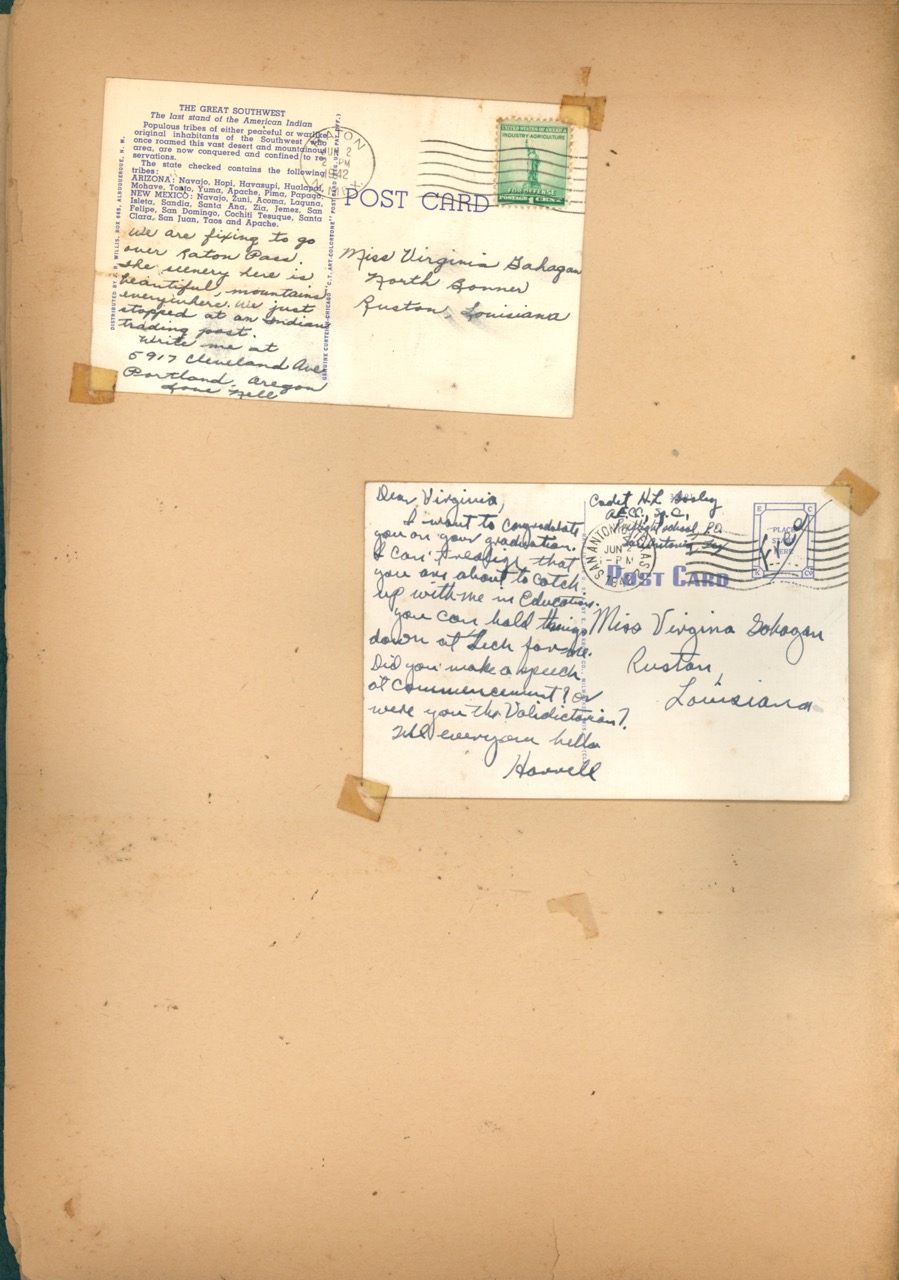 THE GREAT SOUTHWEST
The last stand of the American Indian
Populous tribes of either peaceful or warlike
original inhabitants of the Southwest who
once roamed this vast desert and mountainous
area, are now conquered and confined to re-
servations.
The state checked contains the following
tribes:
ARIZONA: Navajo, Hopi, Havasupi, Hualapai,
Mohave, Tonto, Yuma, Apache, Pima, Papago.
NEW MEXICO: Navajo, Zuni, Acoma, Laguna,
Isleta, Sandia, Santa Ana, Zia, Jemez, San
Felipe, San Domingo, Cochiti Tesuque, Santa
Clara, San Juan, Taos and Apache.
We are fixing to go
over Raton Pass.
the scenery here is
beautiful, mountains
everywhere. We just
stopped at an Indian
trading post.
Write me at
5917 Cleveland Ave
Portland, Oregon
Love Nell
DISTRIBUTED BY J. R. WILLIS, BOX 665, ALBUQUERQUE, N. M.
GENUINE CURTEICH-CHICAGO "C.T. ART-COLORTONE" POST CARD (REG. U.S. PAT. OFF.)
RATON
JUN 2
PM
1942
N. MEX.
UNITED STATES OF AMERICA
INDUSTRY AGRICULTURE
FOR DEFENSE
POSTAGE 1 CENT
POST CARD
Miss Virginia Gahagan
North Bonner
Ruston, Louisiana
Dear Virginia,
I want to congradulate
you on your graduation.
I can't realize that
you are about to catch
up with me in Education.
You can hold things
down at Tech for me.
Did you make a speech
at Commencement? or
were you the Validictorian?
Tell everyone hello
Harrell
Cadet H.L.
Preflight School, PO
San Antonio, Tex
SAN ANTONIO TEXAS
JUN
PM
E C
PLACE
STAMP
HERE
K Co
Free
POST CARD
Miss Virgina Gahagan
Ruston,
Louisiana